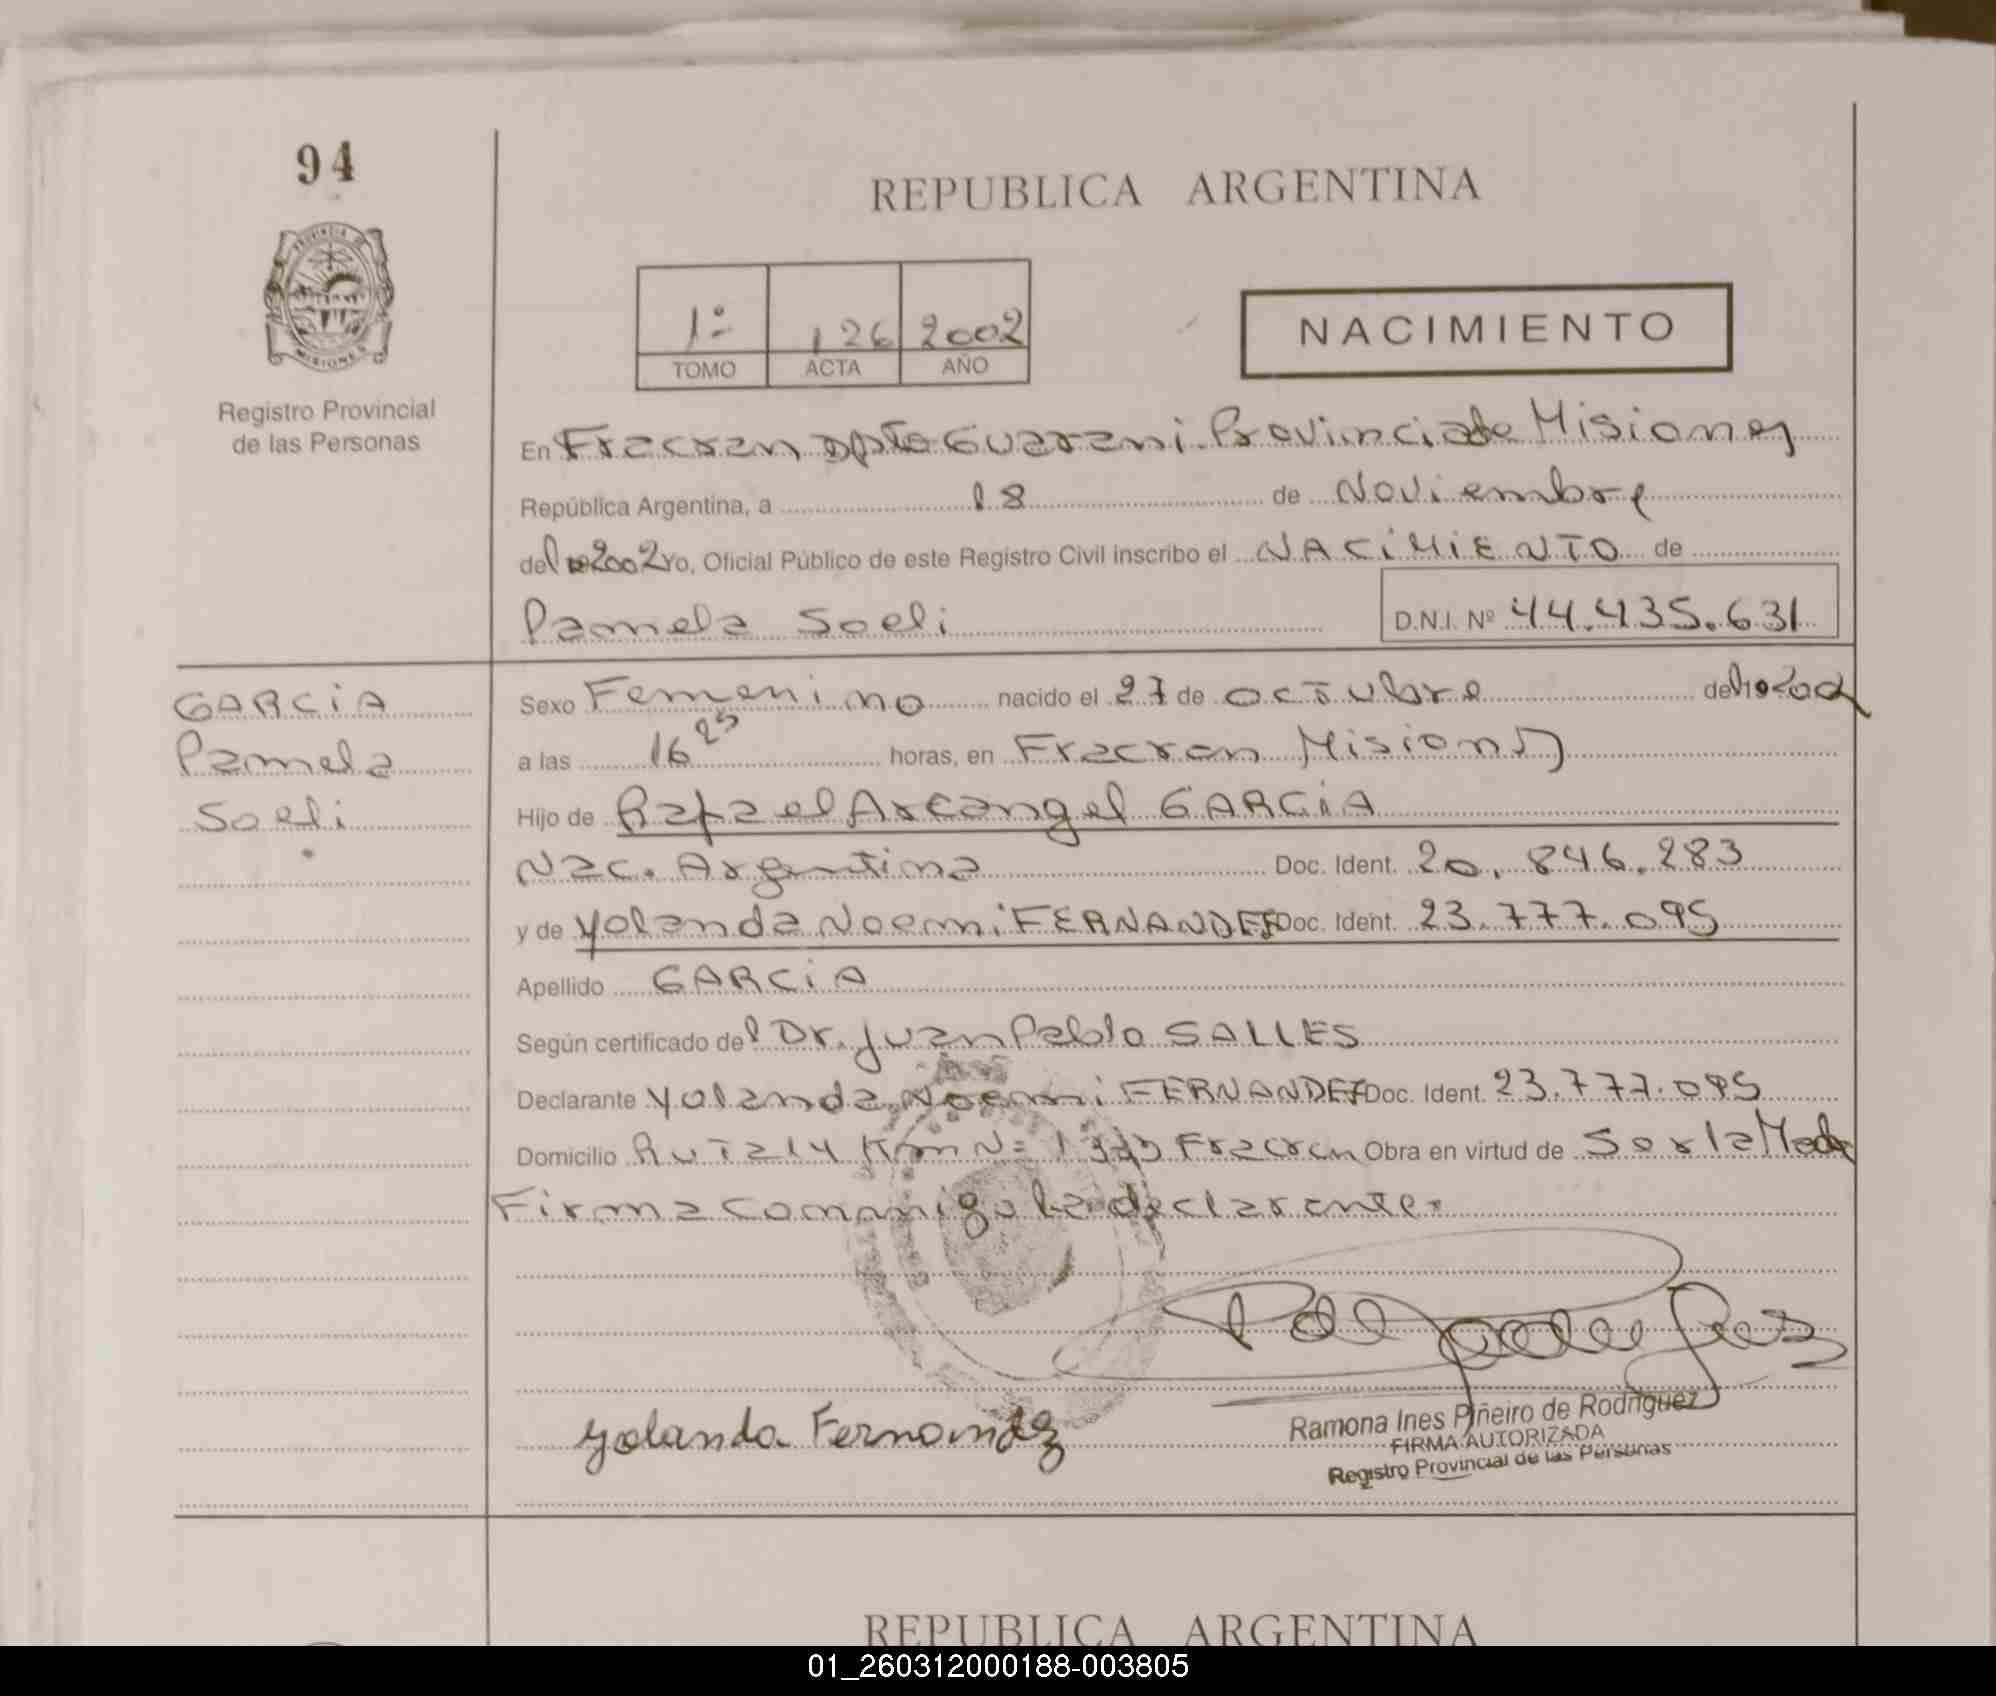 94
REPUBLICA ARGENTINA
PROVINCIA DE
MISIONES
Registro Provincial
de las Personas
1º 126 2002
TOMO ACTA AÑO
NACIMIENTO
En Fracran Dpto Guarani Provincia de Misiones
República Argentina, a 18 de Noviembre
del 2002 Yo, Oficial Público de este Registro Civil inscribo el NACIMIENTO de
Pamela Soeli D.N.I. Nº 44.435.631
GARCIA
Pamela
Soeli
Sexo Femenino nacido el 27 de octubre del 19 2002
a las 16 25 horas, en Fracran Misiones
Hijo de Rafael Arcangel GARCIA
Nac. Argentina Doc. Ident. 20.846.283
y de Yolanda Noemi FERNANDEZ Doc. Ident. 23.777.095
Apellido GARCIA
Según certificado del Dr. Juan Pablo SALLES
Declarante Yolanda Noemi FERNANDEZ Doc. Ident. 23.777.095
Domicilio Ruta 14 Km Nº Fracran Obra en virtud de Ser la Madre
Firma conmigo la declarante.
Yolanda Fernandez
Ramona Ines Piñeiro de Rodriguez
FIRMA AUTORIZADA
Registro Provincial de las Personas
REPUBLICA ARGENTINA
01_260312000188-003805